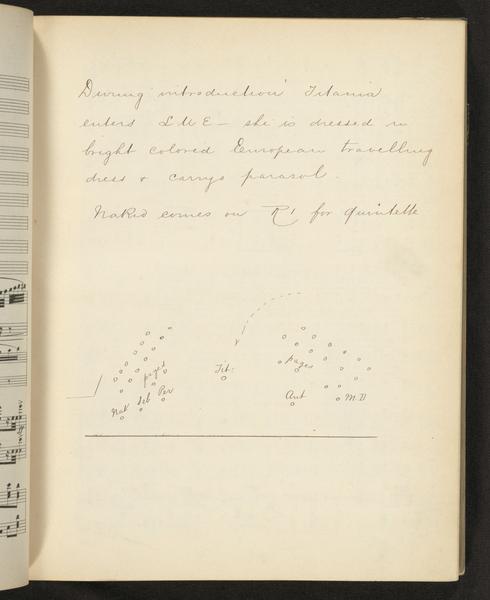 During introduction Titania
enters L U E – she is dressed in
bright colored European travelling
dress & carrys parasol.
Nakid comes on R 1 for quintette
pages
pages
Tit:
Nak
Seb
Per
Ant
M.D